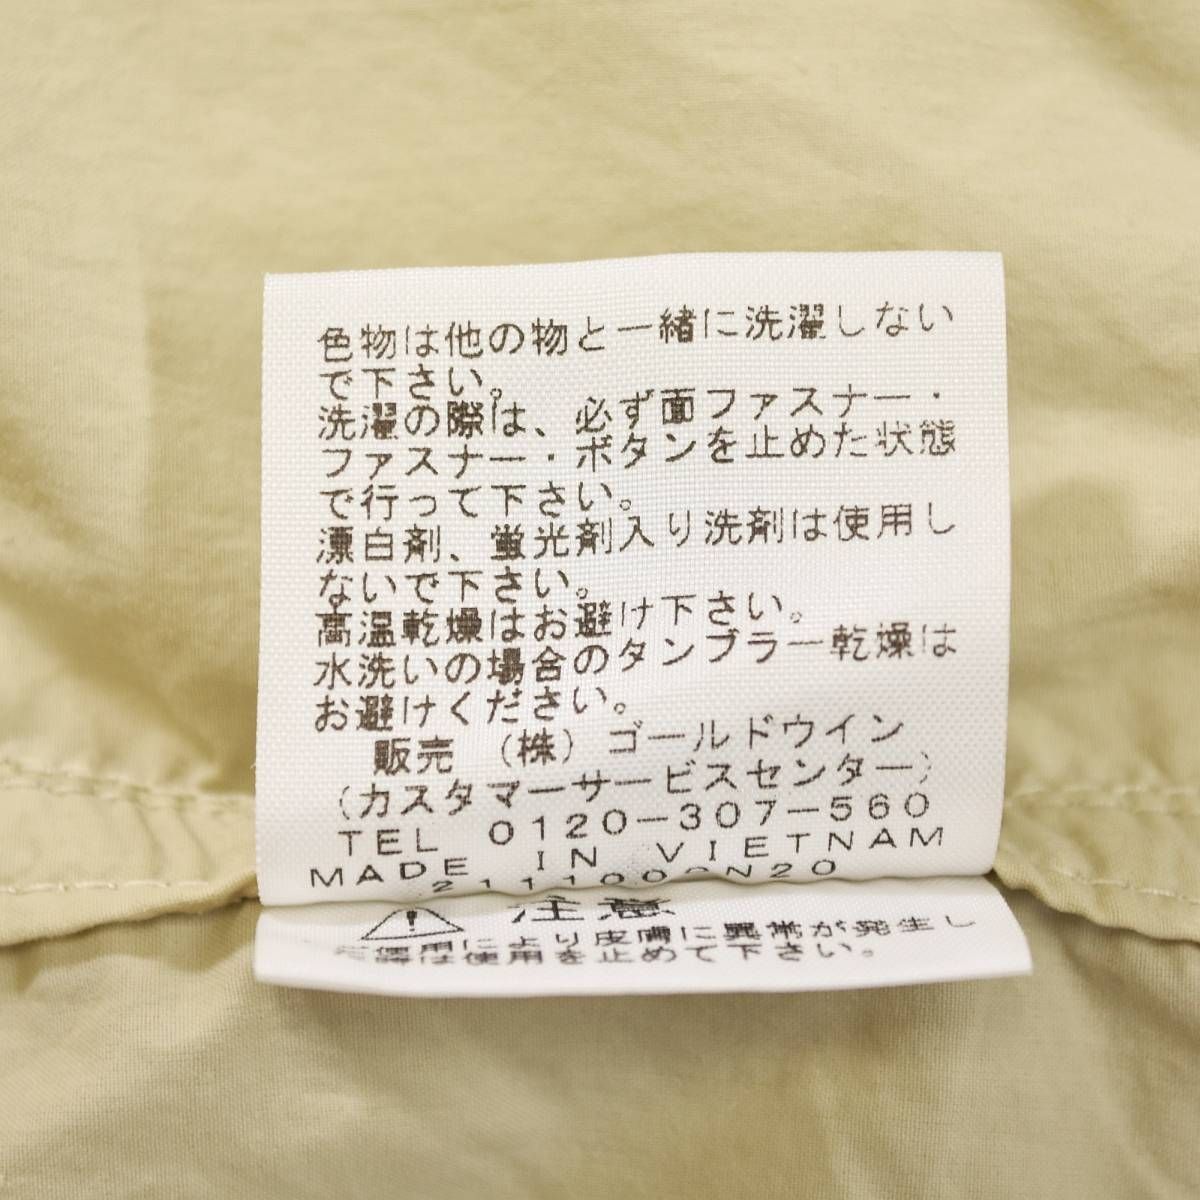 色物は他の物と一緒に洗濯しない
で下さい。
洗濯の際は、必ず面ファスナー・
ファスナー・ボタンを止めた状態
で行って下さい。
漂白剤、蛍光剤入り洗剤は使用し
ないで下さい。
高温乾燥はお避け下さい。
水洗いの場合のタンブラー乾燥は
お避けください。
販売 (株)ゴールドウイン
(カスタマーサービスセンター)
TEL 0120-307-560
MADE IN VIETNAM
注意
使用により皮膚に異常が発生し
は使用を止めて下さい。